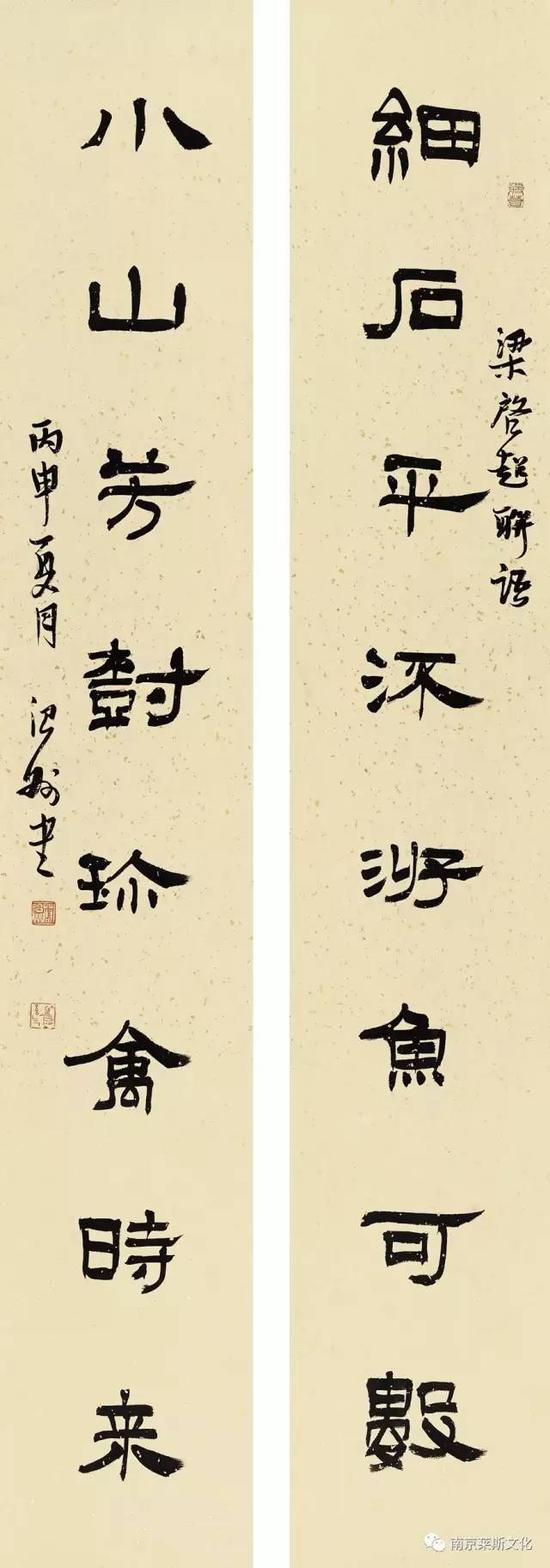 梁啓超聯語
細石平流游魚可數
小山芳樹珍禽時来
丙申夏月 书
南京莱斯文化